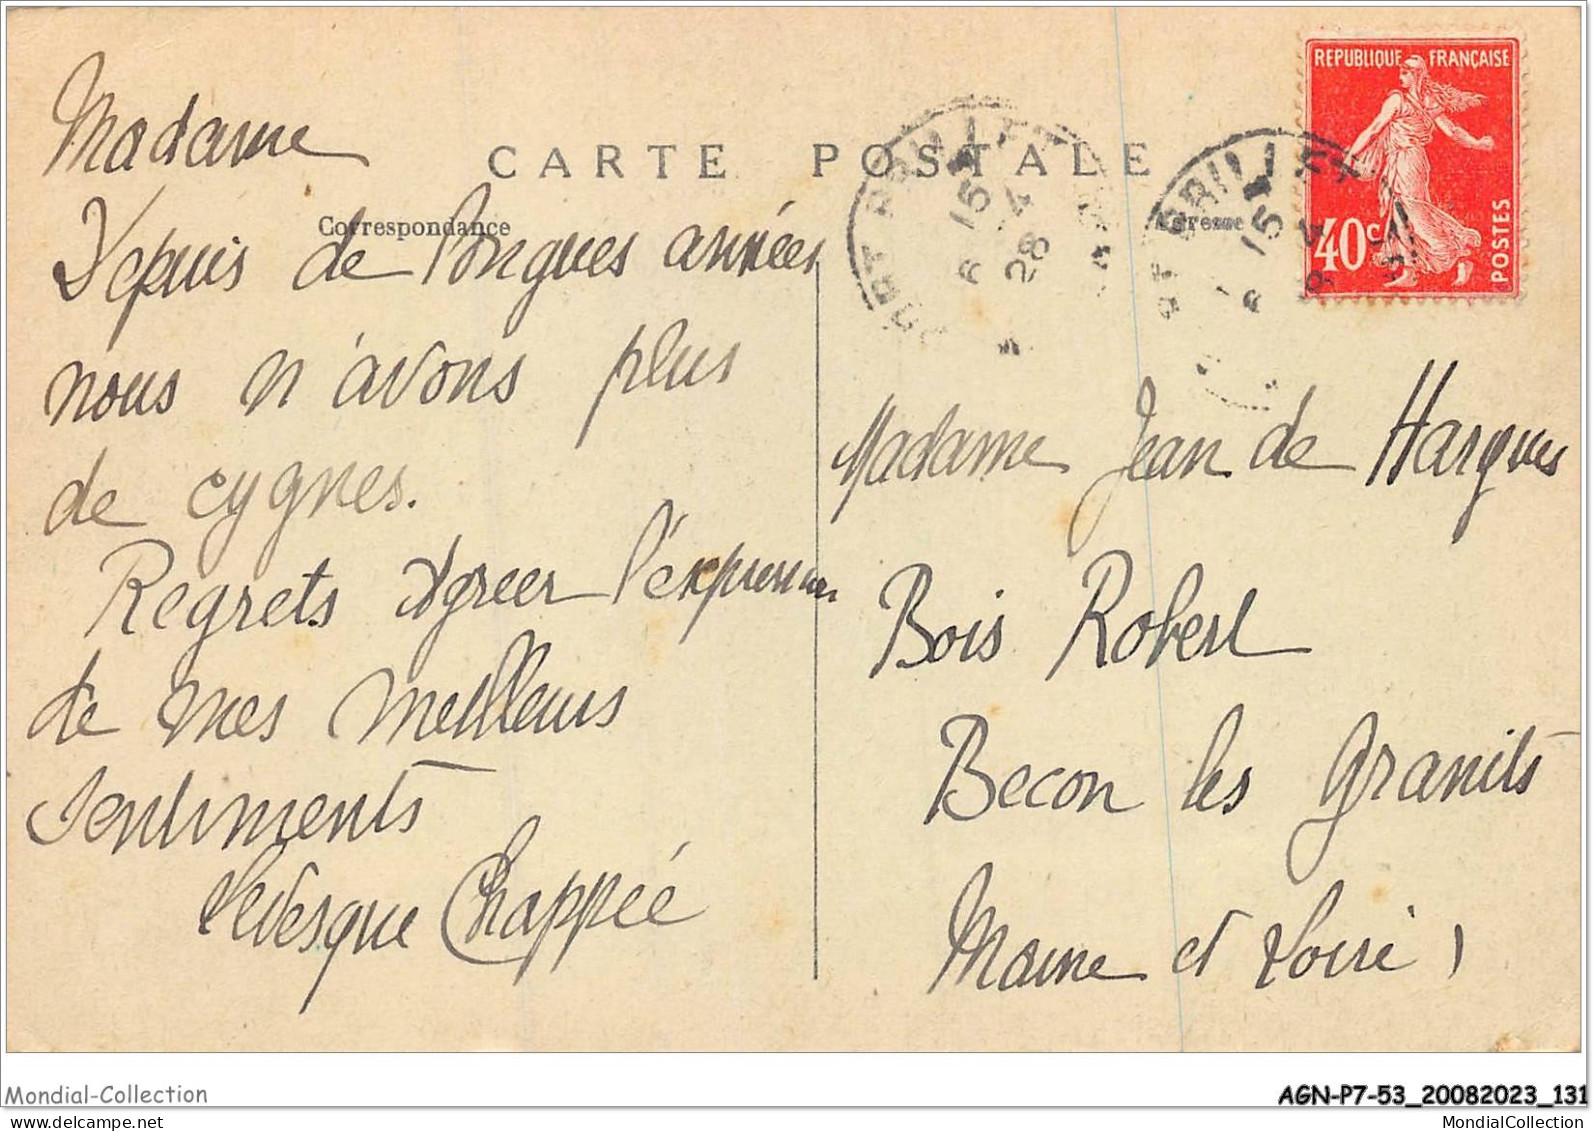 CARTE POSTALE
Correspondance
Adresse
REPUBLIQUE FRANÇAISE
40c
POSTES
PORT BRILLET
Madame
Depuis de longues années
nous n'avons plus
de cygnes.
Regrets Agreer l'expression
de mes meilleurs
sentiments
Levesque Chappée
Madame Jean de Hargues
Bois Robert
Becon les Granits
Maine et Loire
Mondial-Collection
AGN-P7-53_20082023_131
MondialCollection